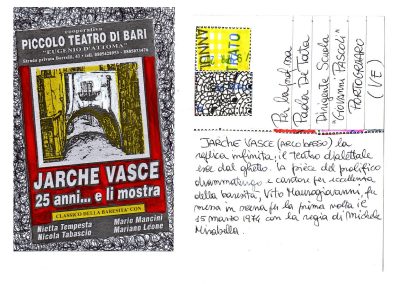 cooperativa
PICCOLO TEATRO DI BARI
"EUGENIO D'ATTOMA"
Strada privata Borrelli, 43 • tel.
JARCHE VASCE
25 anni... e li mostra
CLASSICO DELLA BARESITA' CON
Nietta Tempesta
Nicola Tabascio
Mario Mancini
Mariano Leone
Dirigente Scuola
"Giovanni Pascoli"
PORTOGRUARO
(VE)
JARCHE VASCE (ARCO BASSO) la
replica infinita, il teatro dialettale
esce dal ghetto. La pièce del prolifico
drammaturgo e cantore per eccellenza
della baresità, Vito Maurogiovanni, fu
messa in scena per la prima volta il
15 marzo 1974 con la regia di Michele
Mirabella.